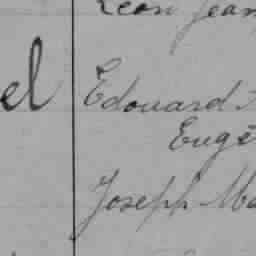 Léon Jean
el Edouard
Eugè
Joseph Ma